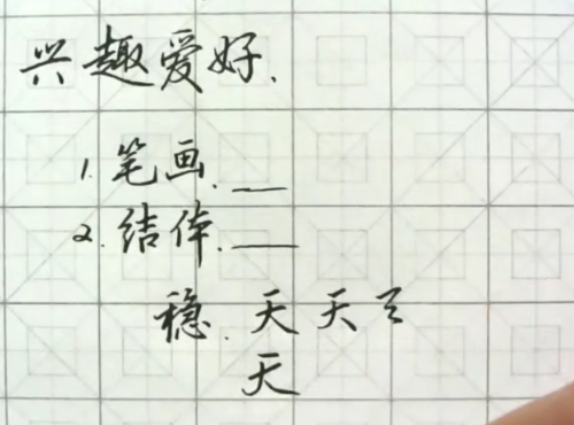 兴趣爱好.
1. 笔画.
2. 结体.
稳. 天天
天